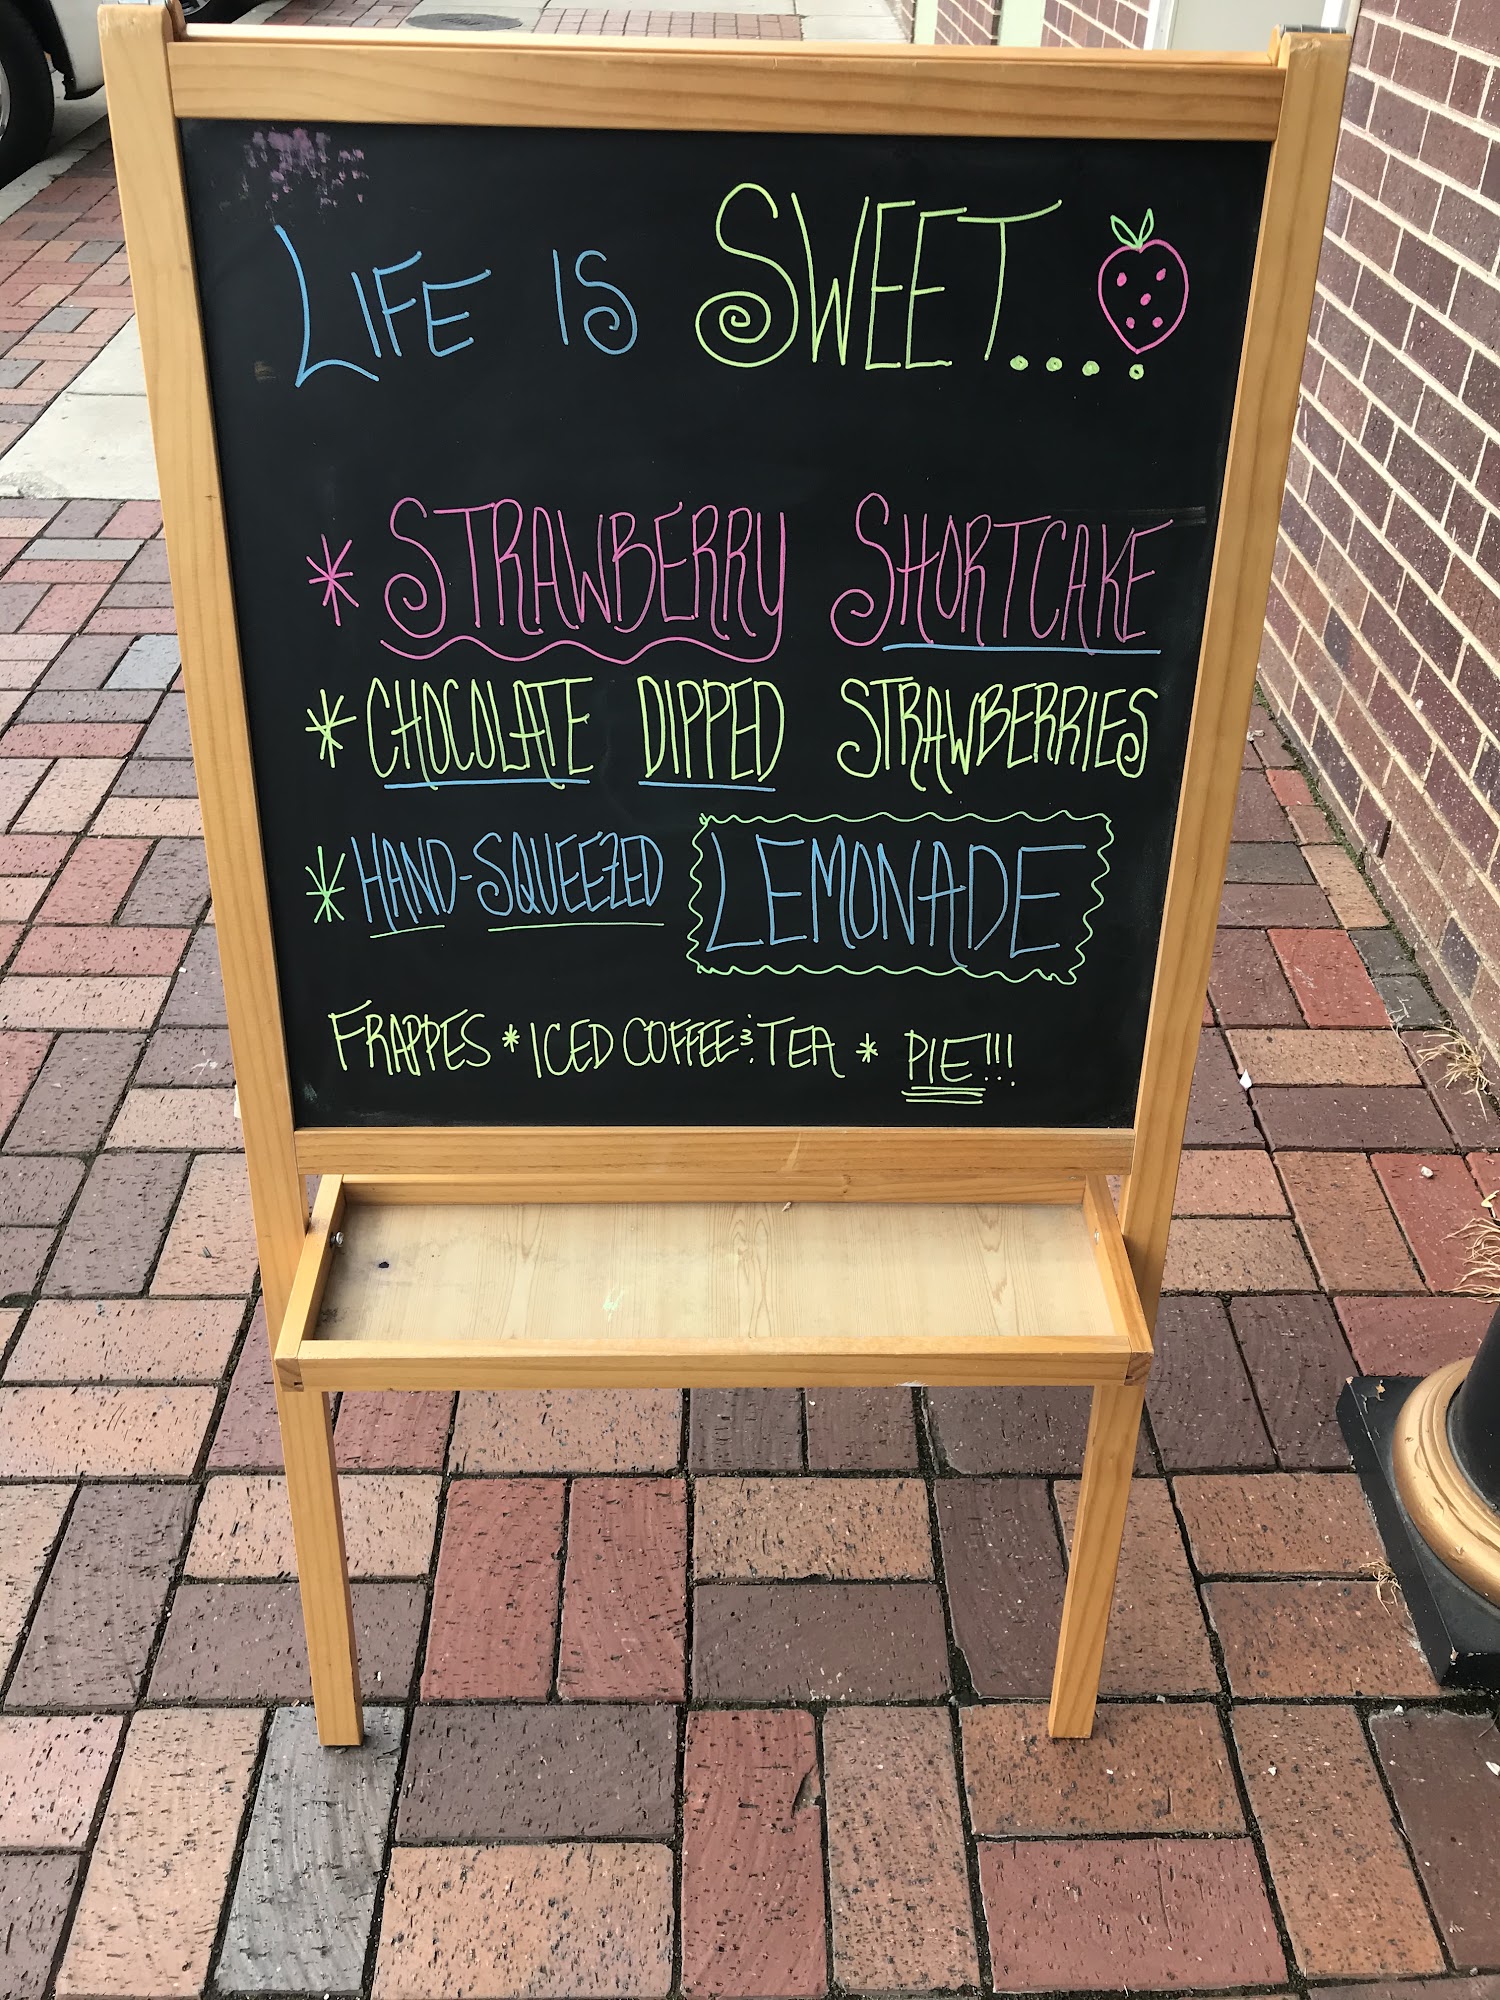 LIFE IS SWEET....
* STRAWBERRY SHORTCAKE
* CHOCOLATE DIPPED STRAWBERRIES
* HAND-SQUEEZED LEMONADE
FRAPPES * ICED COFFEE & TEA * PIE!!!